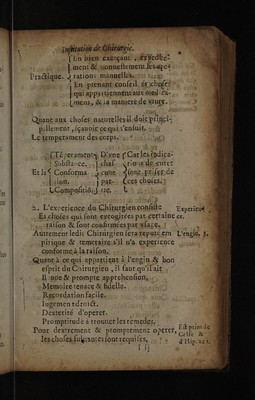 Institution de Chirurgie.
En bien exerçant, expedie-
ment & honnestement les ope-
Practique. rations manuelles.
En prenant conseil és choses
qui appartiennent aux medica-
mens, & la maniere de viure.
Quant aux choses naturelles il doit princi-
pallement, sçauoir ce qui s'ensuit.
Le temperament des corps.
Temperament D'vne Car les indica-
Substance. chas- tions de curer
Et la Conforma cune sont prises de
tion. par- ces choses.
Compositiō. tie.
2. L'experience du Chirurgien consiste Experien-
Es choses qui sont excogitées par certaine ce.
raison & sont confirmées par vsage.
Autrement ledit Chirurgien sera reputé em L'engin. 3.
pirique & temeraire s'il n'a experience
conforme à la raison.
Quant à ce qui appartient à l'engin & bon
esprit du Chirurgien, il faut qu'il ait
Bonne & prompte apprehension.
Memoire tenace & fidelle.
Recordation facile.
Iugement droict.
Dexterité d'operer.
Promptitude à trouuer les remedes.
Pour dextrement & promptement operer, Est prins de
les choses suiuantes sont requises. Celse &
d'Hip.